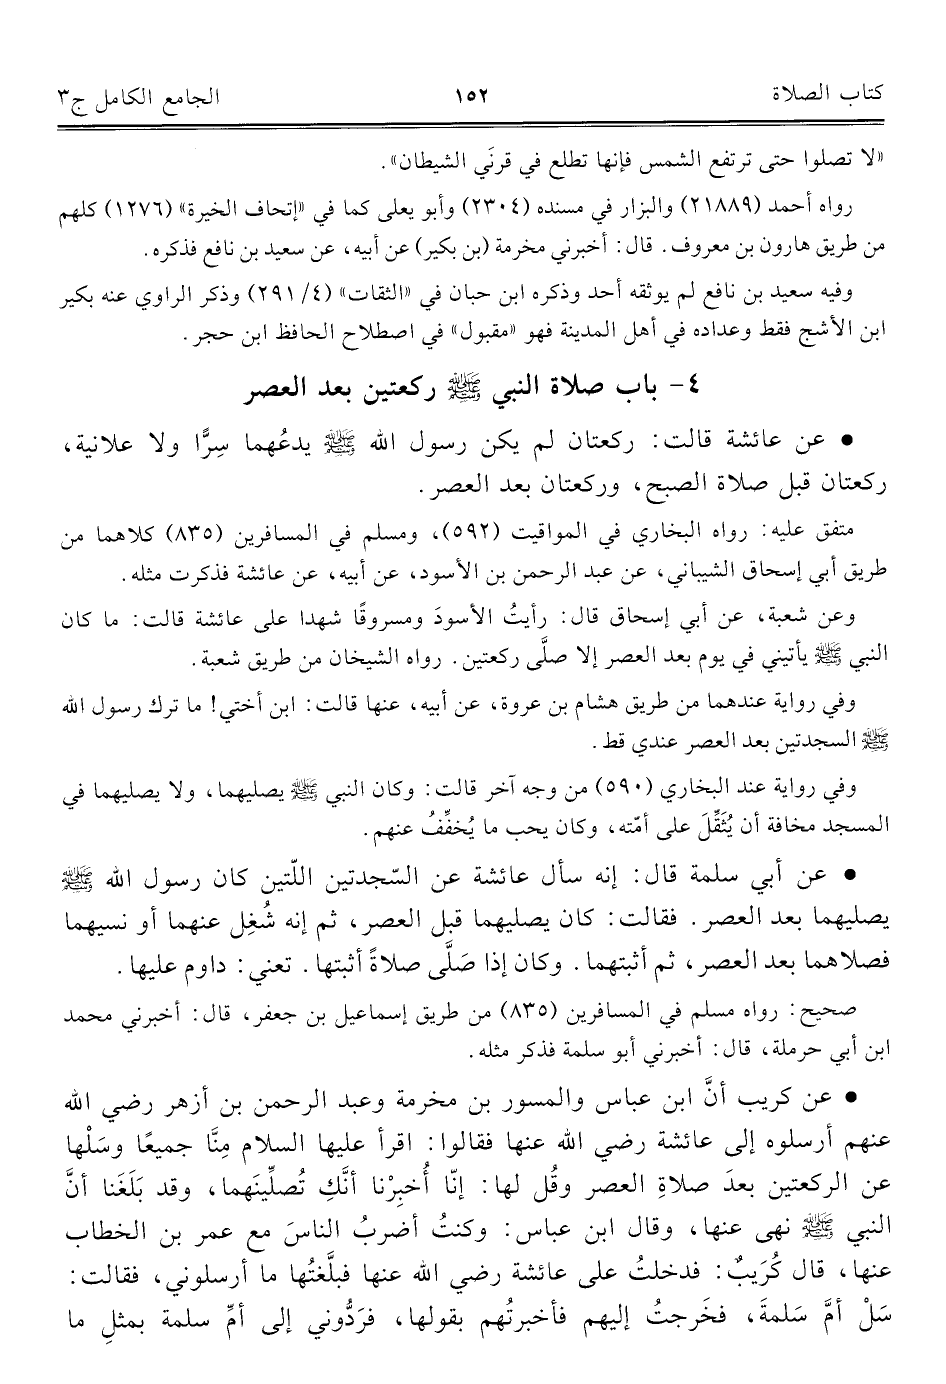 كتاب الصلاة ١٥٢ الجامع الكامل ج٣
«لا تصلوا حتى ترتفع الشمس فإنها تطلع في قرنَي الشيطان».
رواه أحمد (٢١٨٨٩) والبزار في مسنده (٢٣٠٤) وأبو يعلى كما في «إتحاف الخيرة» (١٢٧٦) كلهم
من طريق هارون بن معروف. قال: أخبرني مخرمة (بن بكير) عن أبيه، عن سعيد بن نافع فذكره.
وفيه سعيد بن نافع لم يوثقه أحد وذكره ابن حبان في «الثقات» (٤/ ٢٩١) وذكر الراوي عنه بكير
ابن الأشج فقط وعداده في أهل المدينة فهو «مقبول» في اصطلاح الحافظ ابن حجر.
٤- باب صلاة النبي ﷺ ركعتين بعد العصر
• عن عائشة قالت: ركعتان لم يكن رسول الله ﷺ يدعُهما سِرًّا ولا علانية،
ركعتان قبل صلاة الصبح، وركعتان بعد العصر.
متفق عليه: رواه البخاري في المواقيت (٥٩٢)، ومسلم في المسافرين (٨٣٥) كلاهما من
طريق أبي إسحاق الشيباني، عن عبد الرحمن بن الأسود، عن أبيه، عن عائشة فذكرت مثله.
وعن شعبة، عن أبي إسحاق قال: رأيتُ الأسودَ ومسروقًا شهدا على عائشة قالت: ما كان
النبي ﷺ يأتيني في يوم بعد العصر إلا صلَّى ركعتين. رواه الشيخان من طريق شعبة.
وفي رواية عندهما من طريق هشام بن عروة، عن أبيه، عنها قالت: ابن أختي! ما ترك رسول الله
ﷺ السجدتين بعد العصر عندي قط.
وفي رواية عند البخاري (٥٩٠) من وجه آخر قالت: وكان النبي ﷺ يصليهما، ولا يصليهما في
المسجد مخافة أن يُثَقِّلَ على أمّته، وكان يحب ما يُخفِّفُ عنهم.
• عن أبي سلمة قال: إنه سأل عائشة عن السّجدتين اللّتين كان رسول الله ﷺ
يصليهما بعد العصر. فقالت: كان يصليهما قبل العصر، ثم إنه شُغِل عنهما أو نسيهما
فصلاهما بعد العصر، ثم أثبتهما. وكان إذا صَلَّى صلاةً أثبتها. تعني: داوم عليها.
صحيح: رواه مسلم في المسافرين (٨٣٥) من طريق إسماعيل بن جعفر، قال: أخبرني محمد
ابن أبي حرملة، قال: أخبرني أبو سلمة فذكر مثله.
• عن كريب أنَّ ابن عباس والمسور بن مخرمة وعبد الرحمن بن أزهر رضي الله
عنهم أرسلوه إلى عائشة رضي الله عنها فقالوا: اقرأ عليها السلام مِنَّا جميعًا وسَلْها
عن الركعتين بعدَ صلاةِ العصر وقُل لها: إنّا أُخبِرْنا أنَّكِ تُصلِّينَهما، وقد بَلَغَنا أنَّ
النبي ﷺ نهى عنها، وقال ابن عباس: وكنتُ أضربُ الناسَ مع عمر بن الخطاب
عنها، قال كُرَيبٌ: فدخلتُ على عائشة رضي الله عنها فبلَّغتُها ما أرسلوني، فقالت:
سَلْ أمَّ سَلمةَ، فخَرجتُ إليهم فأخبرتُهم بقولها، فرَدُّوني إلى أمِّ سلمة بمثلِ ما